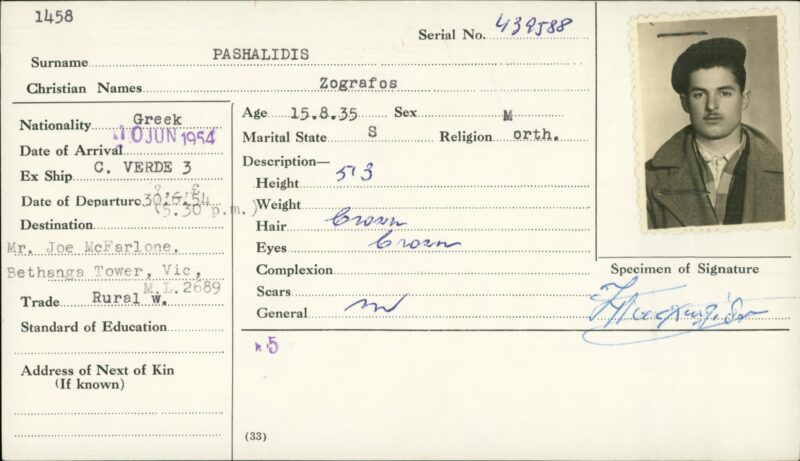 1458
Serial No. 439588
Surname PASHALIDIS
Christian Names Zografos
Nationality Greek
Date of Arrival 10 JUN 1954
Ex Ship C. VERDE 3
Date of Departure 30.6.54
(5.30 p.m.)
Destination
Mr. Joe McFarlone.
Bethanga Tower, Vic,
M.L.2689
Trade Rural w.
Standard of Education
Address of Next of Kin
(If known)
Age 15.8.35 Sex M
Marital State S Religion orth.
Description—
Height 5'3
Weight
Hair brown
Eyes brown
Complexion
Scars
General
5
(33)
Specimen of Signature